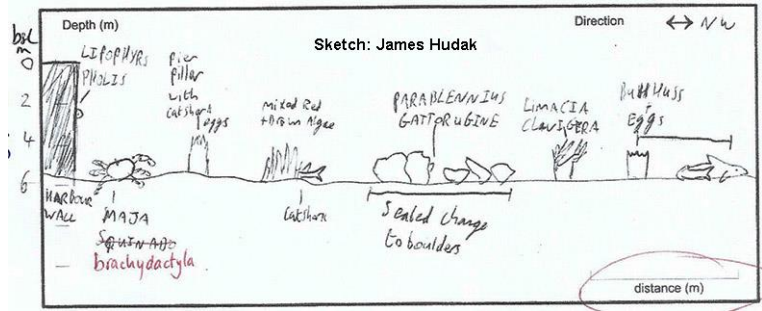 Depth (m)
Direction
↔ NW
Sketch: James Hudak
bsl
m
0
2
4
6
LIPOPHYRS
PHOLIS
Pier
pillar
with
catshark
eggs
Mixed Red
+ Brown Algae
PARABLENNIUS
GATTORUGINE
LIMACIA
CLAVIGERA
Bull Huss
Eggs
HARBOUR
WALL
MAJA
SQUINADO
brachydactyla
Catshark
Sealed change
to boulders
distance (m)